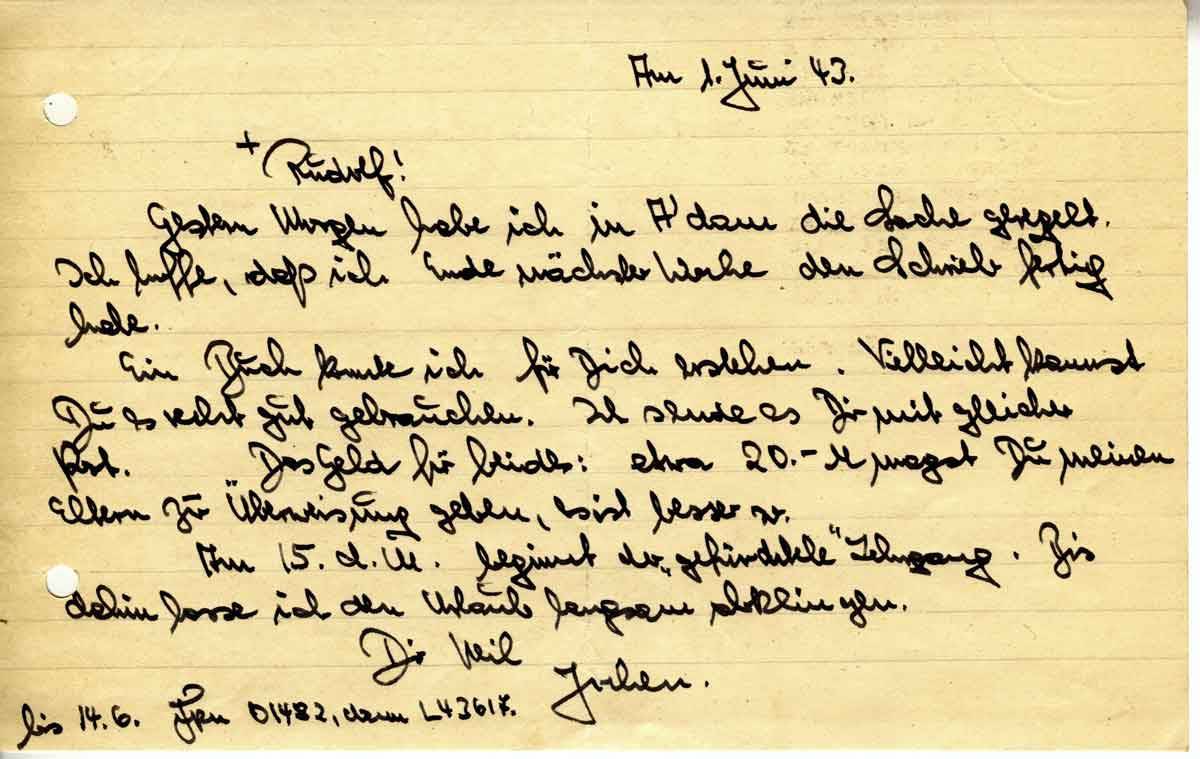 Am 1. Juni 43.
+
Rudolf!
Gestern Morgen habe ich in A'dam die Sache geregelt.
Ich hoffe, daß ich Ende nächster Woche den Schrieb fertig
habe.
Ein Buch konnte ich für Dich erstehen. Vielleicht kannst
Du es recht gut gebrauchen. Ich sende es Dir mit gleicher
Post. Das Geld für beides: etwa 20.-M magst Du meinen
Eltern zur Überweisung geben, es ist besser so.
Am 15. d. M. beginnt der „gefürchtete" Lehrgang. Bis
dahin lasse ich den Urlaub langsam abklingen.
Dir Heil
Jochen.
bis 14.6. 01482, dann L43617.